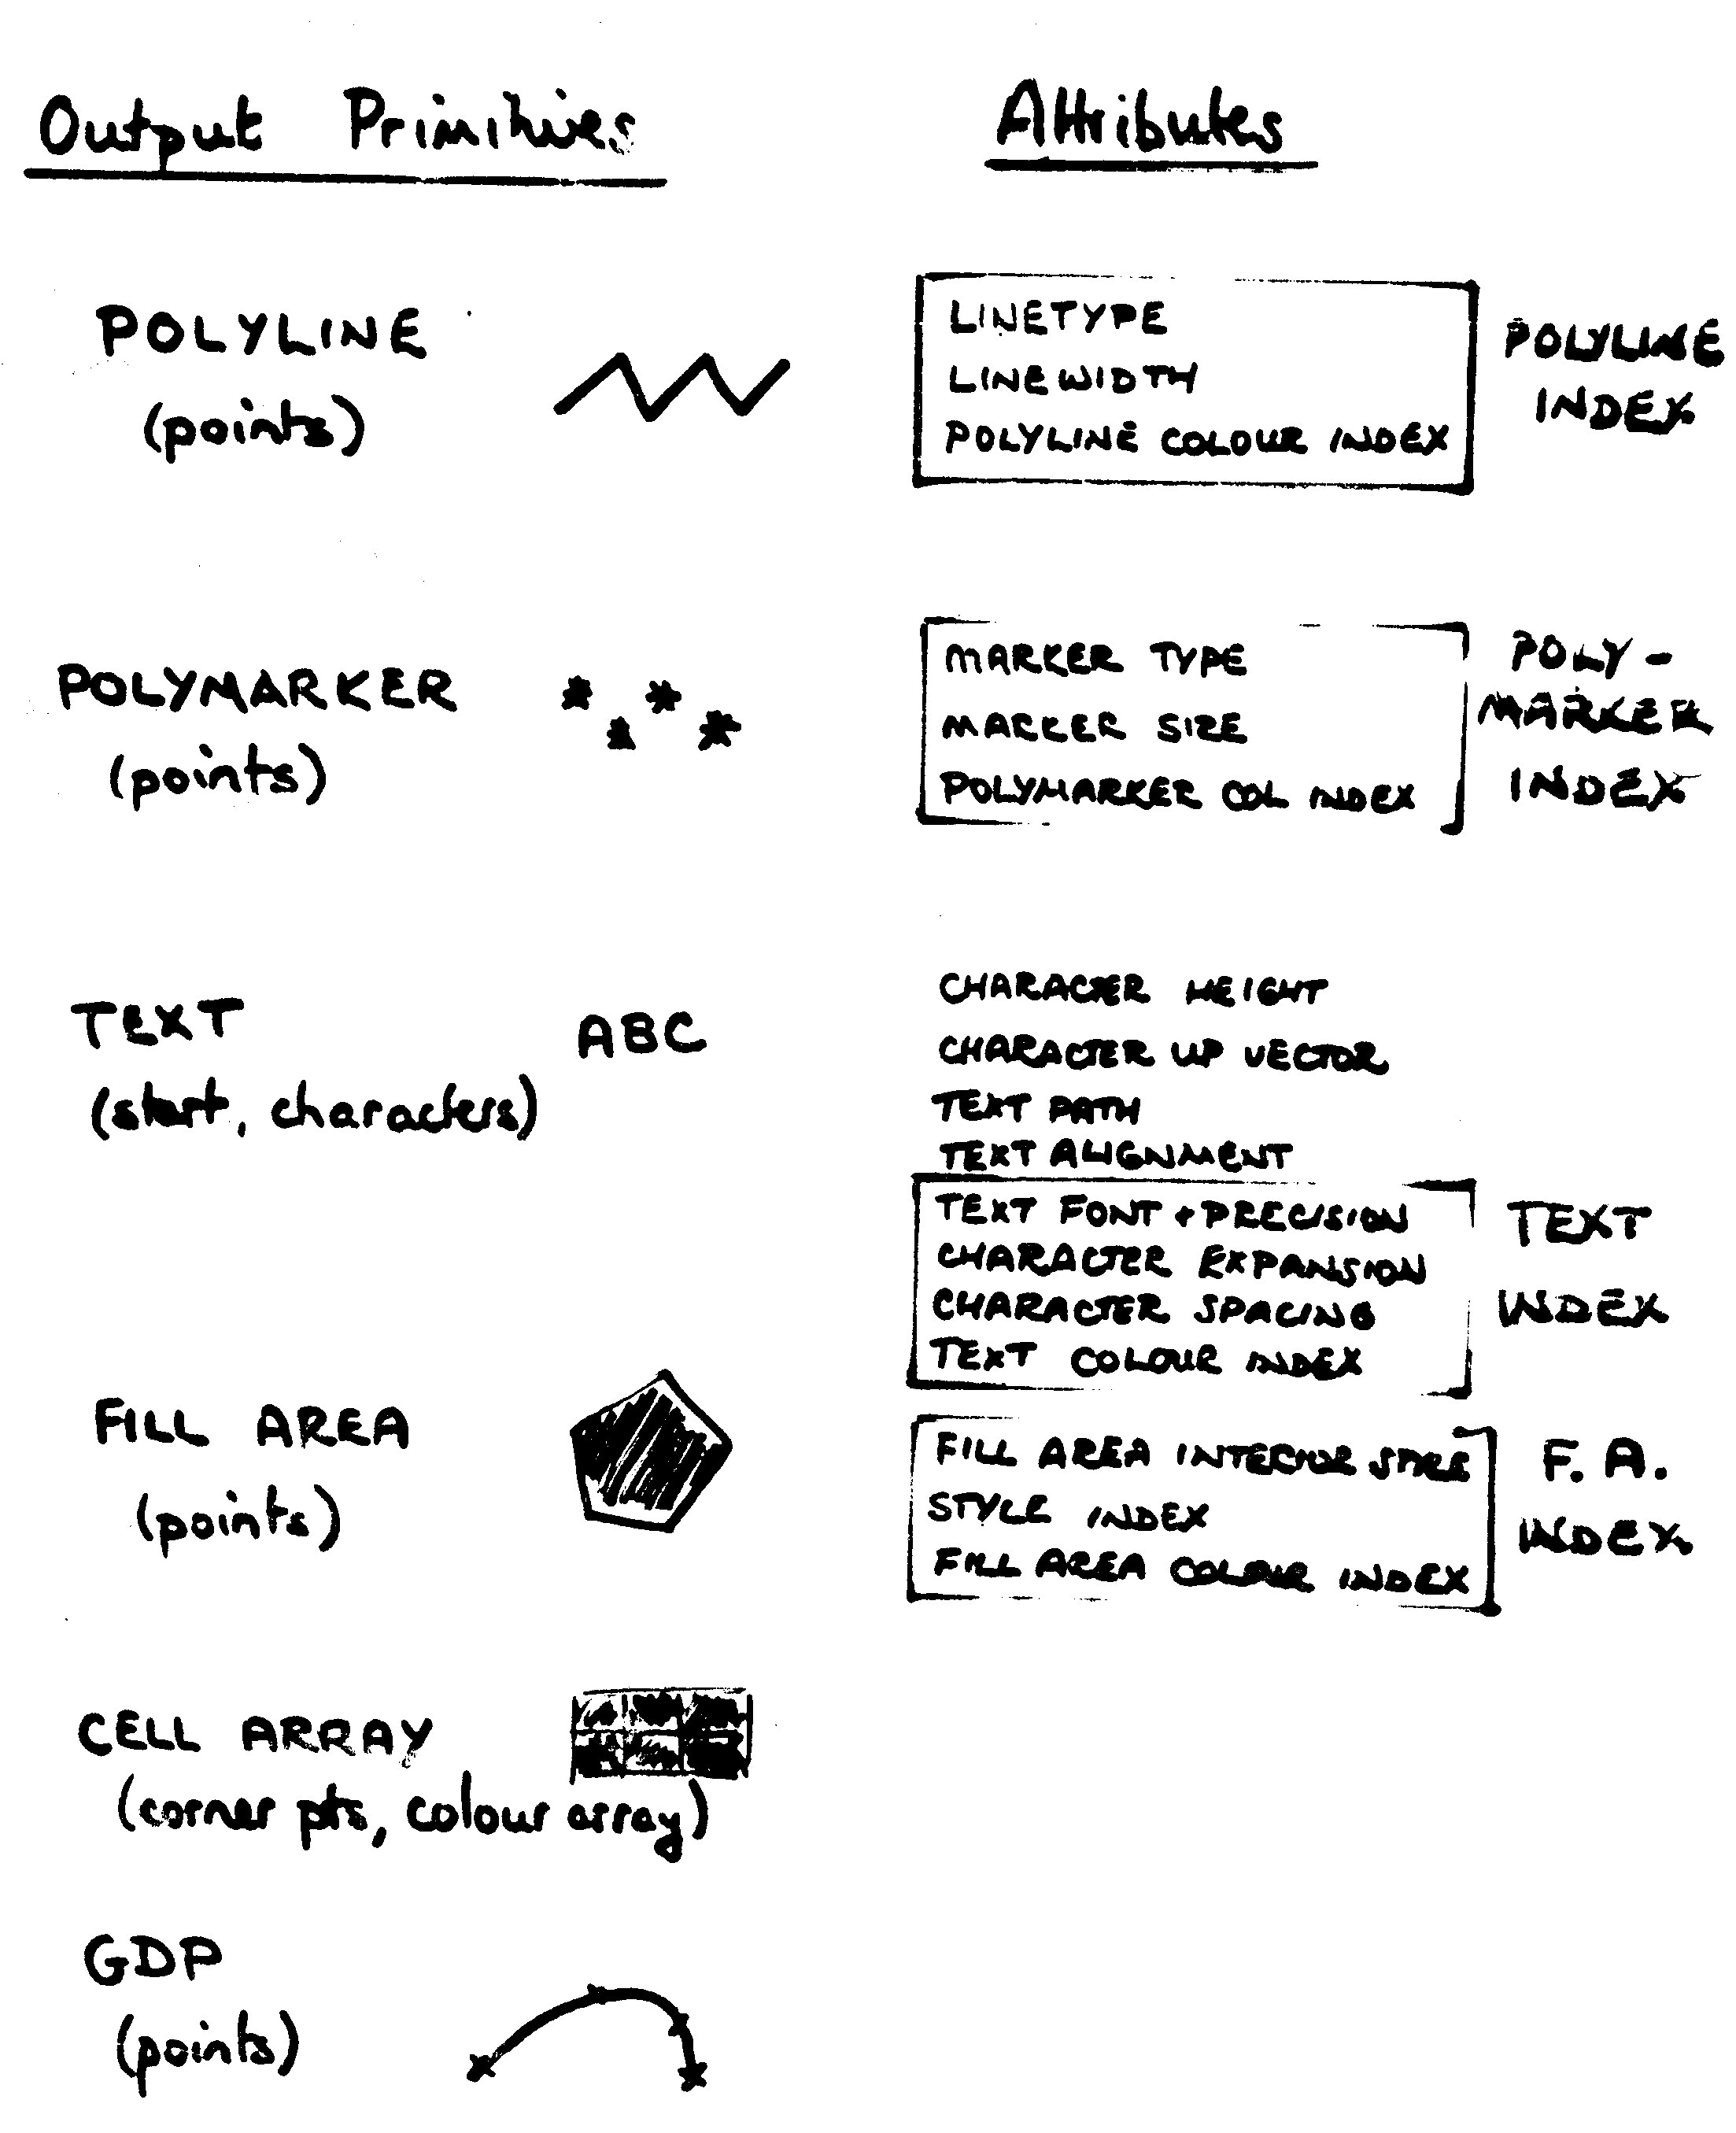 Output Primitives
Attributes
POLYLINE
(points)
LINETYPE
LINEWIDTH
POLYLINE COLOUR INDEX
POLYLINE
INDEX
POLYMARKER
(points)
MARKER TYPE
MARKER SIZE
POLYMARKER COL INDEX
POLY-
MARKER
INDEX
TEXT
(start, characters)
ABC
CHARACTER HEIGHT
CHARACTER UP VECTOR
TEXT PATH
TEXT ALIGNMENT
TEXT FONT + PRECISION
CHARACTER EXPANSION
CHARACTER SPACING
TEXT COLOUR INDEX
TEXT
INDEX
FILL AREA
(points)
FILL AREA INTERIOR STYLE
STYLE INDEX
FILL AREA COLOUR INDEX
F. A.
INDEX
CELL ARRAY
(corner pts, colour array)
GDP
(points)